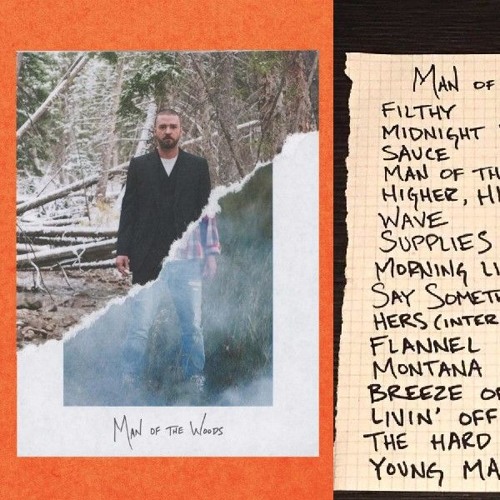 Man of the Woods
Man of
FILTHY
MIDNIGHT
SAUCE
MAN OF TH
HIGHER, HI
WAVE
SUPPLIES
MORNING LI
SAY SOMETH
HERS (INTER
FLANNEL
MONTANA
BREEZE OF
LIVIN' OFF
THE HARD
YOUNG MA